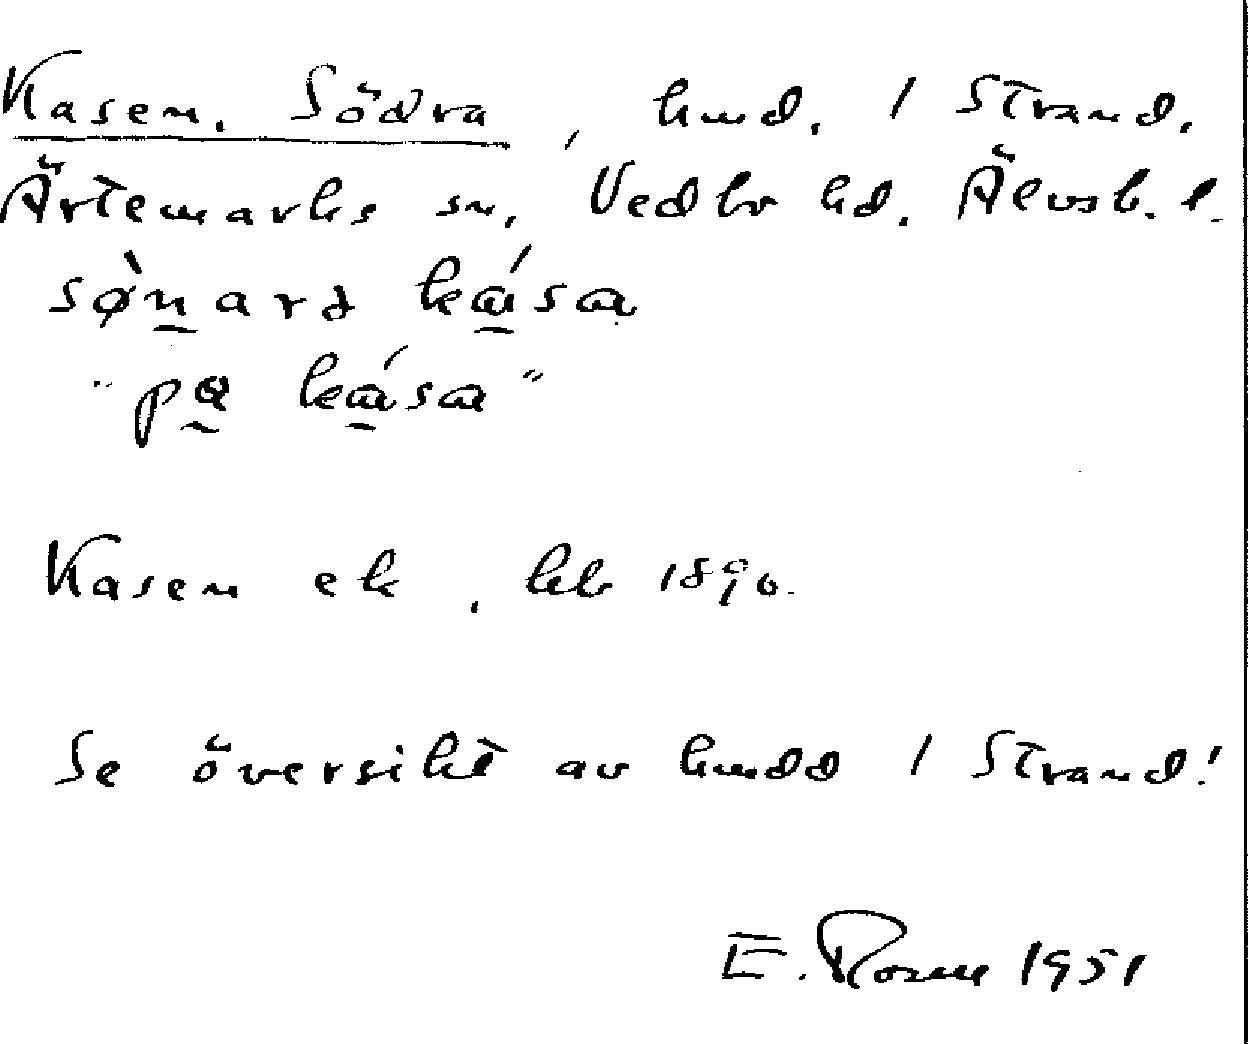 Kasen, Södra, hmd. / Strand,
Ärtemarks sn, Vedbo hd. Älvsb. l.
sø̀narə kása
"på kása"
Kasen ek, hlb 1890.
Se översikt av hmdd / Strand!
E. Rosell 1951